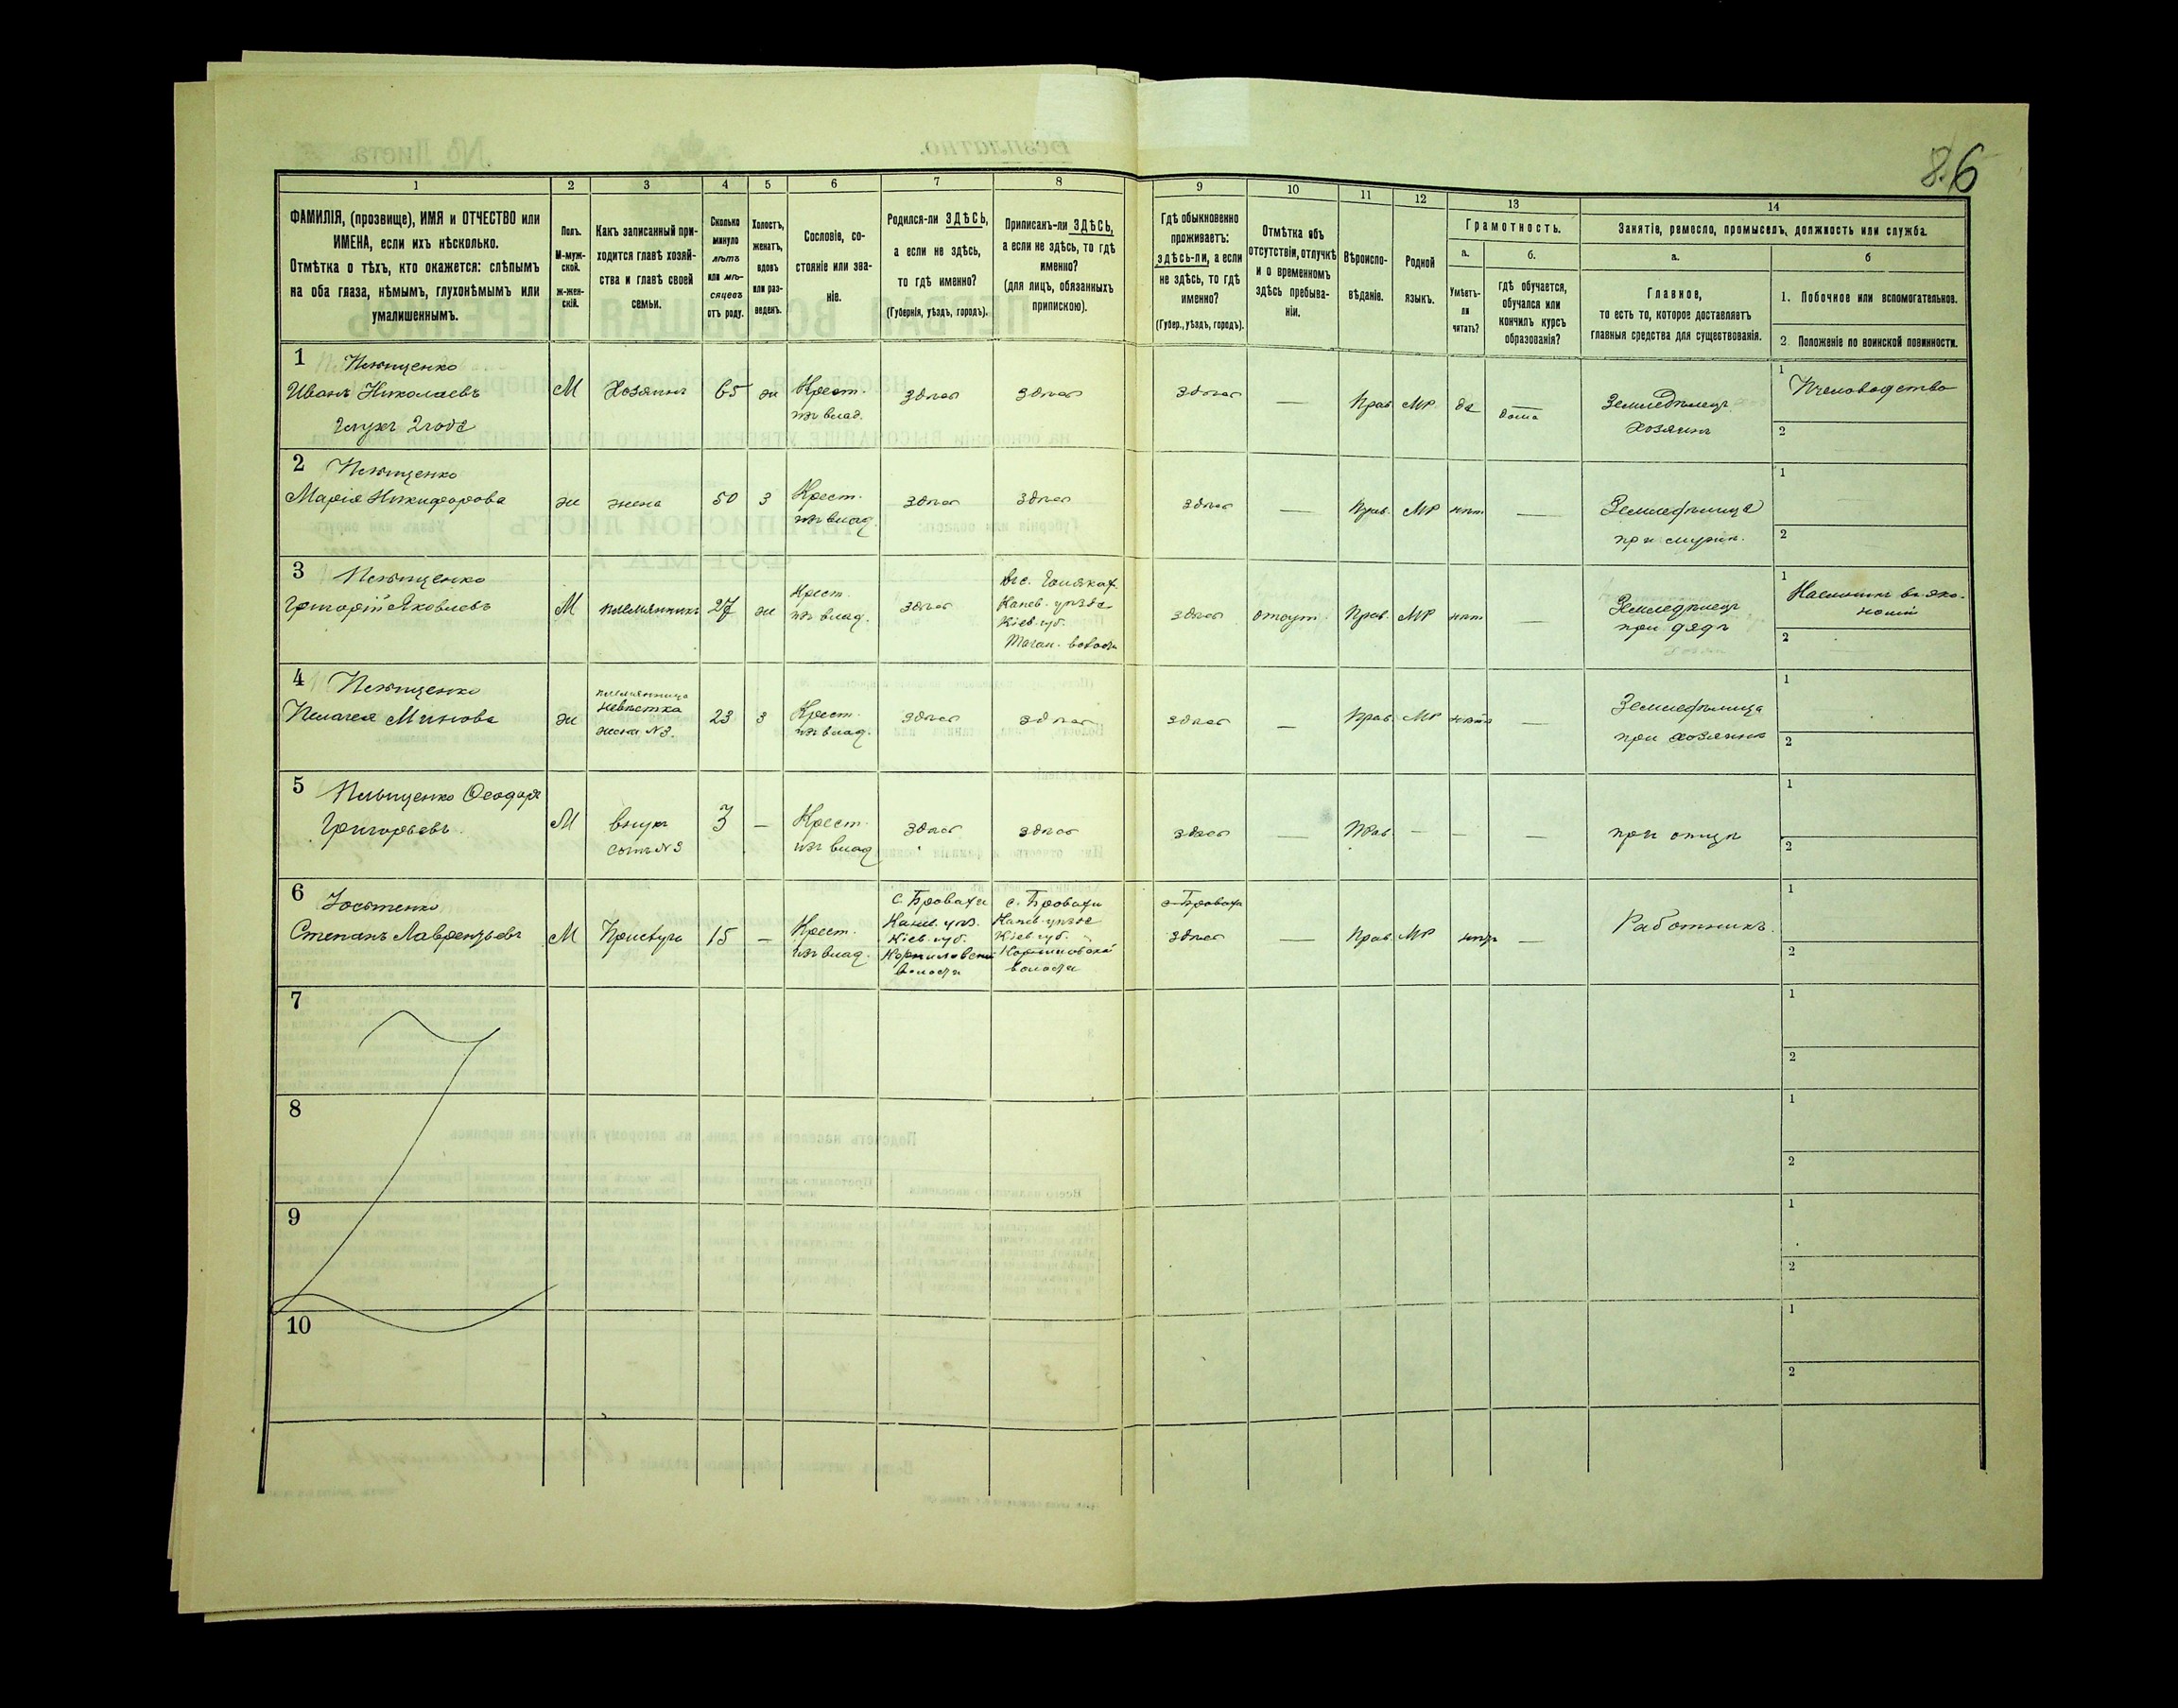 8.6
1
2
3
4
5
6
7
8
9
10
11
12
13
14
ФАМИЛІЯ, (прозвище), ИМЯ и ОТЧЕСТВО или
ИМЕНА, если ихъ нѣсколько.
Отмѣтка о тѣхъ, кто окажется: слѣпымъ
на оба глаза, нѣмымъ, глухонѣмымъ или
умалишеннымъ.
Полъ.
М-муж-
ской.
ж-жен-
скій.
Какъ записанный при-
ходится главѣ хозяй-
ства и главѣ своей
семьи.
Сколько
минуло
лѣтъ
или мѣ-
сяцевъ
отъ роду.
Холостъ,
женатъ,
вдовъ
или раз-
веденъ.
Сословіе, со-
стояніе или зва-
ніе.
Родился-ли ЗДѢСЬ,
а если не здѣсь,
то гдѣ именно?
(Губернія, уѣздъ, городъ).
Приписанъ-ли ЗДѢСЬ,
а если не здѣсь, то гдѣ
именно?
(для лицъ, обязанныхъ
припискою).
Гдѣ обыкновенно
проживаетъ:
здѣсь-ли, а если
не здѣсь, то гдѣ
именно?
(Губер., уѣздъ, городъ).
Отмѣтка объ
отсутствіи, отлучкѣ
и о временномъ
здѣсь пребыва-
ніи.
Вѣроиспо-
вѣданіе.
Родной
языкъ.
Грамотность.
а.
Умѣетъ-
ли
читать?
б.
гдѣ обучается,
обучался или
кончилъ курсъ
образованія?
Занятіе, ремесло, промыселъ, должность или служба.
а.
Главное,
то есть то, которое доставляетъ
главныя средства для существованія.
б
1. Побочное или вспомогательное.
2. Положеніе по воинской повинности.
1
Иванъ Николаевъ
Глухъ 2 года
М
Хозяинъ
65
ж
Крест.
изъ влад.
здѣсь
здѣсь
здѣсь
—
Прав.
МР.
да
дома
Земледѣлецъ
хозяинъ
1
Пчеловодство
2
2
Марія Никифорова
ж
жена
50
з
Крест.
изъ влад.
здѣсь
здѣсь
здѣсь
—
Прав.
МР
нѣт
—
Земледѣлица
при мужѣ.
1
2
3
Григорій Яковлевъ
М
племянникъ
27
ж
Крест.
изъ влад.
здѣсь
Канев. уѣзда
Кіев. губ.
здѣсь
отсут.
Прав.
МР
нѣт
—
Земледѣлецъ
при дядѣ
1
2
4
Пелагея Минова
ж
племянница
невѣстка
жена №3.
23
з
Крест.
изъ влад.
здѣсь
здѣсь
здѣсь
—
Прав.
МР
нѣтъ
—
Земледѣлица
при хозяинѣ
1
2
5
Григорьевъ.
М
внукъ
сынъ №3
3
—
Крест.
изъ влад
здѣсь
здѣсь
здѣсь
—
Прав.
—
—
—
при отцѣ
1
2
6
Степанъ Лаврентьевъ
М
15
—
Крест.
изъ влад.
с. Бровахи
Канев. уѣз.
Кіев. губ.
волости
с. Бровахи
Канев. уѣзда
Кіев. губ.
волости
с. Бровахи
здѣсь
—
Прав.
МР
нѣтъ
—
Работникъ.
1
2
7
1
2
8
1
2
9
1
2
10
1
2